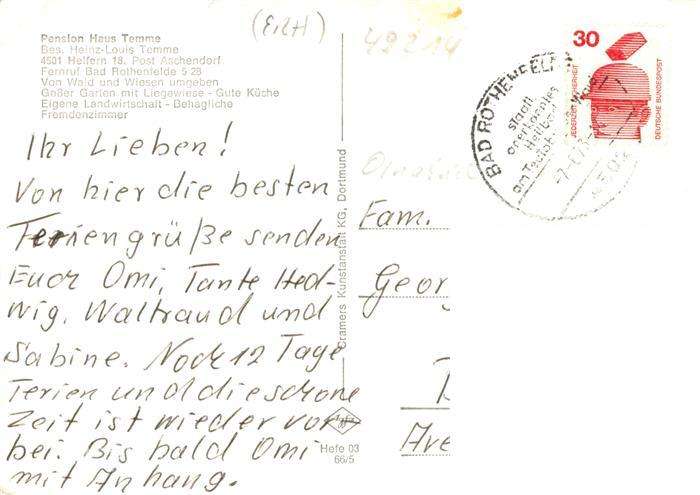 (EιzH)
49214
Pension Haus Temme
Bes. Heinz-Louis Temme
4501 Helfern 18, Post Aschendorf
Fernruf Bad Rothenfelde 5 28
Von Wald und Wiesen umgeben
Großer Garten mit Liegewiese - Gute Küche
Eigene Landwirtschaft - Behagliche
Fremdenzimmer
Ihr Lieben!
Von hier die besten
Feriengrüße senden
Euch Omi, Tante Hed-
wig, Waltraud und
Sabine. Noch 12 Tage
Ferien und die schöne
Zeit ist wieder vor
bei. Bis bald Omi
mit Anhang.
Cramers Kunstanstalt KG, Dortmund
Hefe 03
66/5
30
JEDERZEIT SICHERHEIT
DEUTSCHE BUNDESPOST
BAD ROTHENFELDE
staatl.
anerkanntes
Heilbad
am Teutob.
Fam.
Geor
Ave